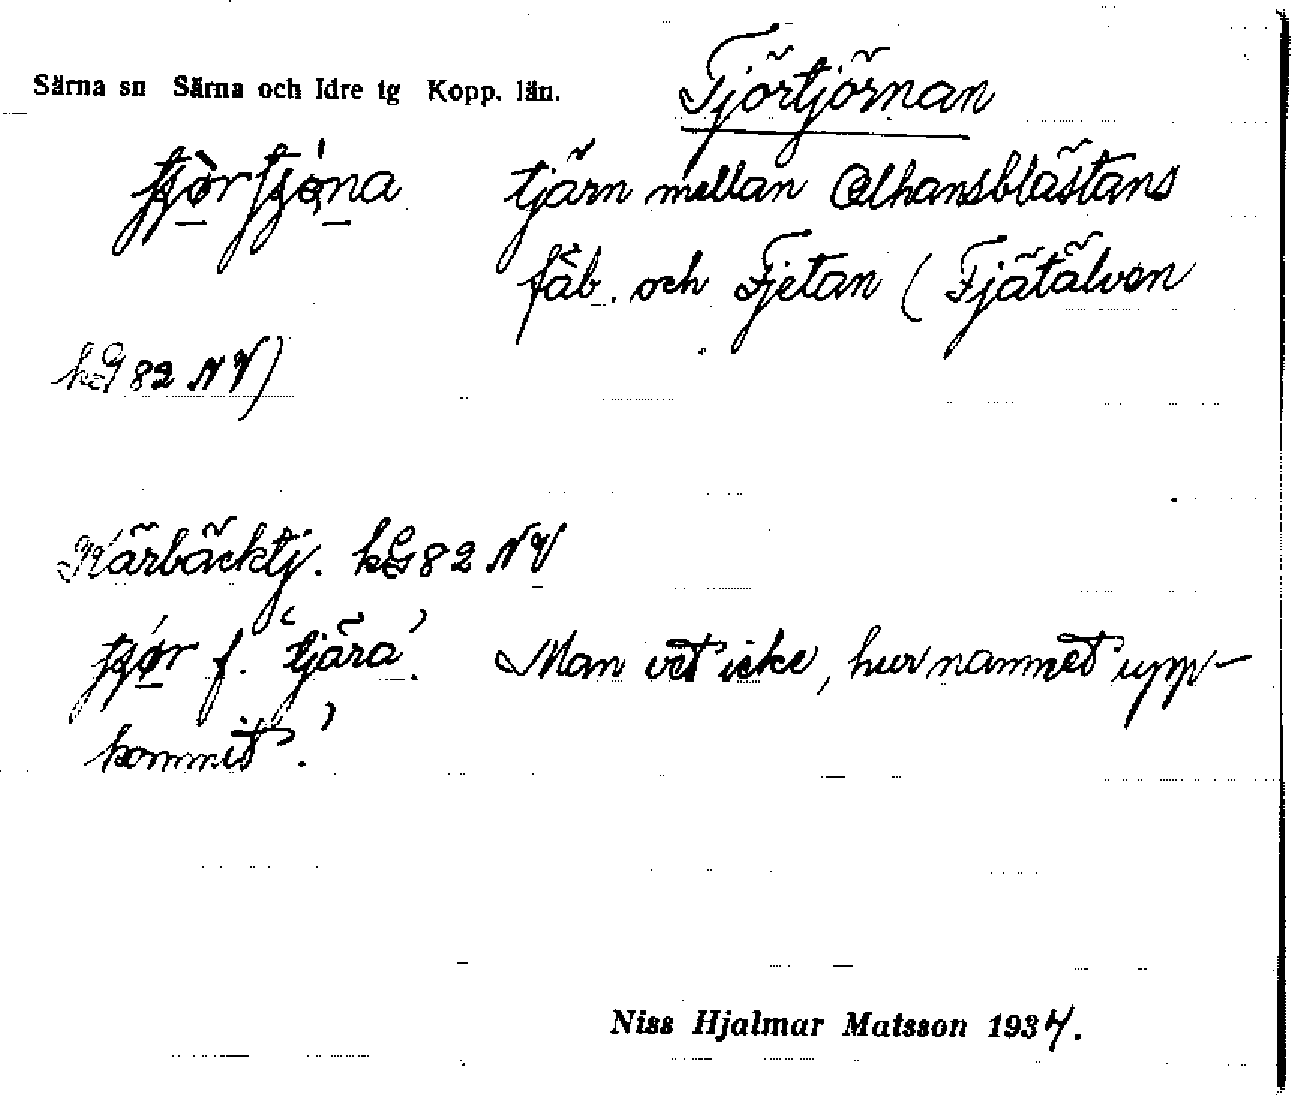 Särna sn Särna och Idre tg Kopp. län.
Tjörtjörnan
tjörtjöna tjärn mellan Olhansblästans
fäb. och Fjetan (Fjätälven
kG 82 NV)
Kärbäcktj. kG 82 NV
tjör f. 'tjära'. Man vet icke, hur namnet upp-
kommit'.
Niss Hjalmar Matsson 1934.